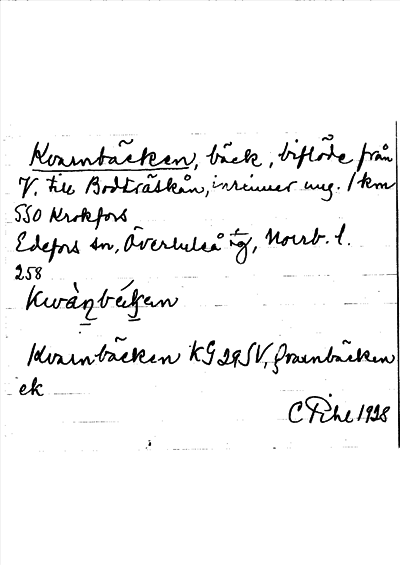 Kvarnbäcken, bäck, biflöde från
V. till Bodträskån, inrinner ung. 1 km
SSO Krokfors
Edefors sn, Överluleå tg, Norrb. l.
258
Kvarnbäcken KG 29 SV, Qvarnbäcken
ek
C Pihl 1928